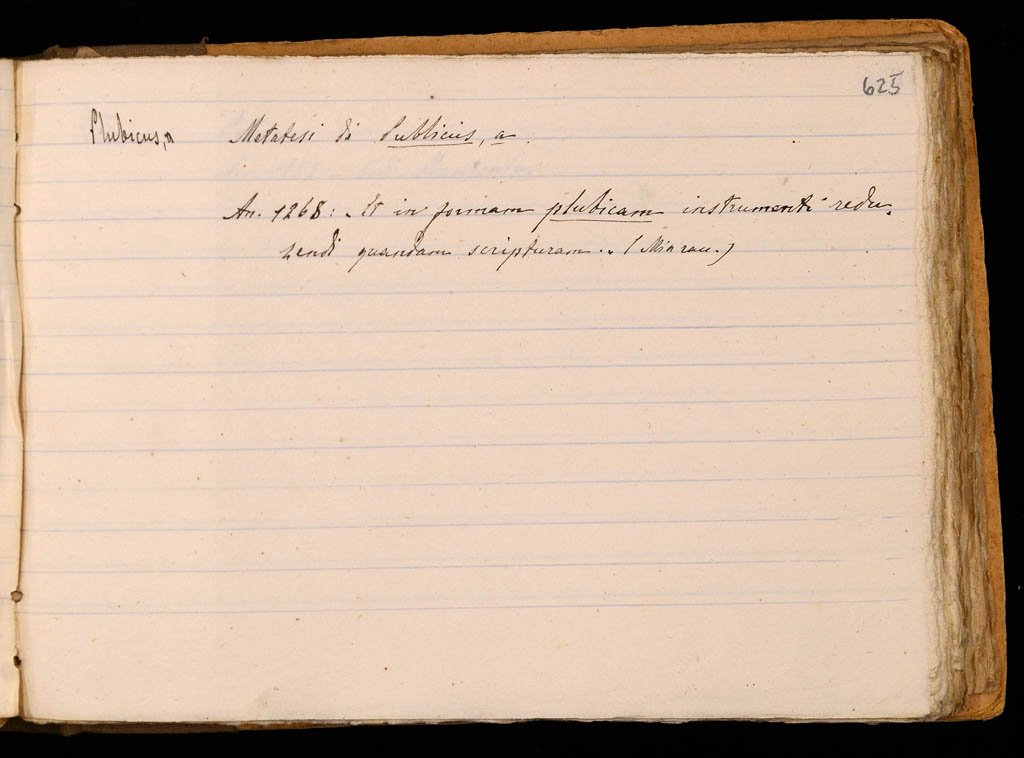 625
Plubicus, a Metatesi di Publicus, a.
An. 1268: „ Et in formam plubicam instrumenti redu,
cendi quandam scripturam. „ (Minrau.)